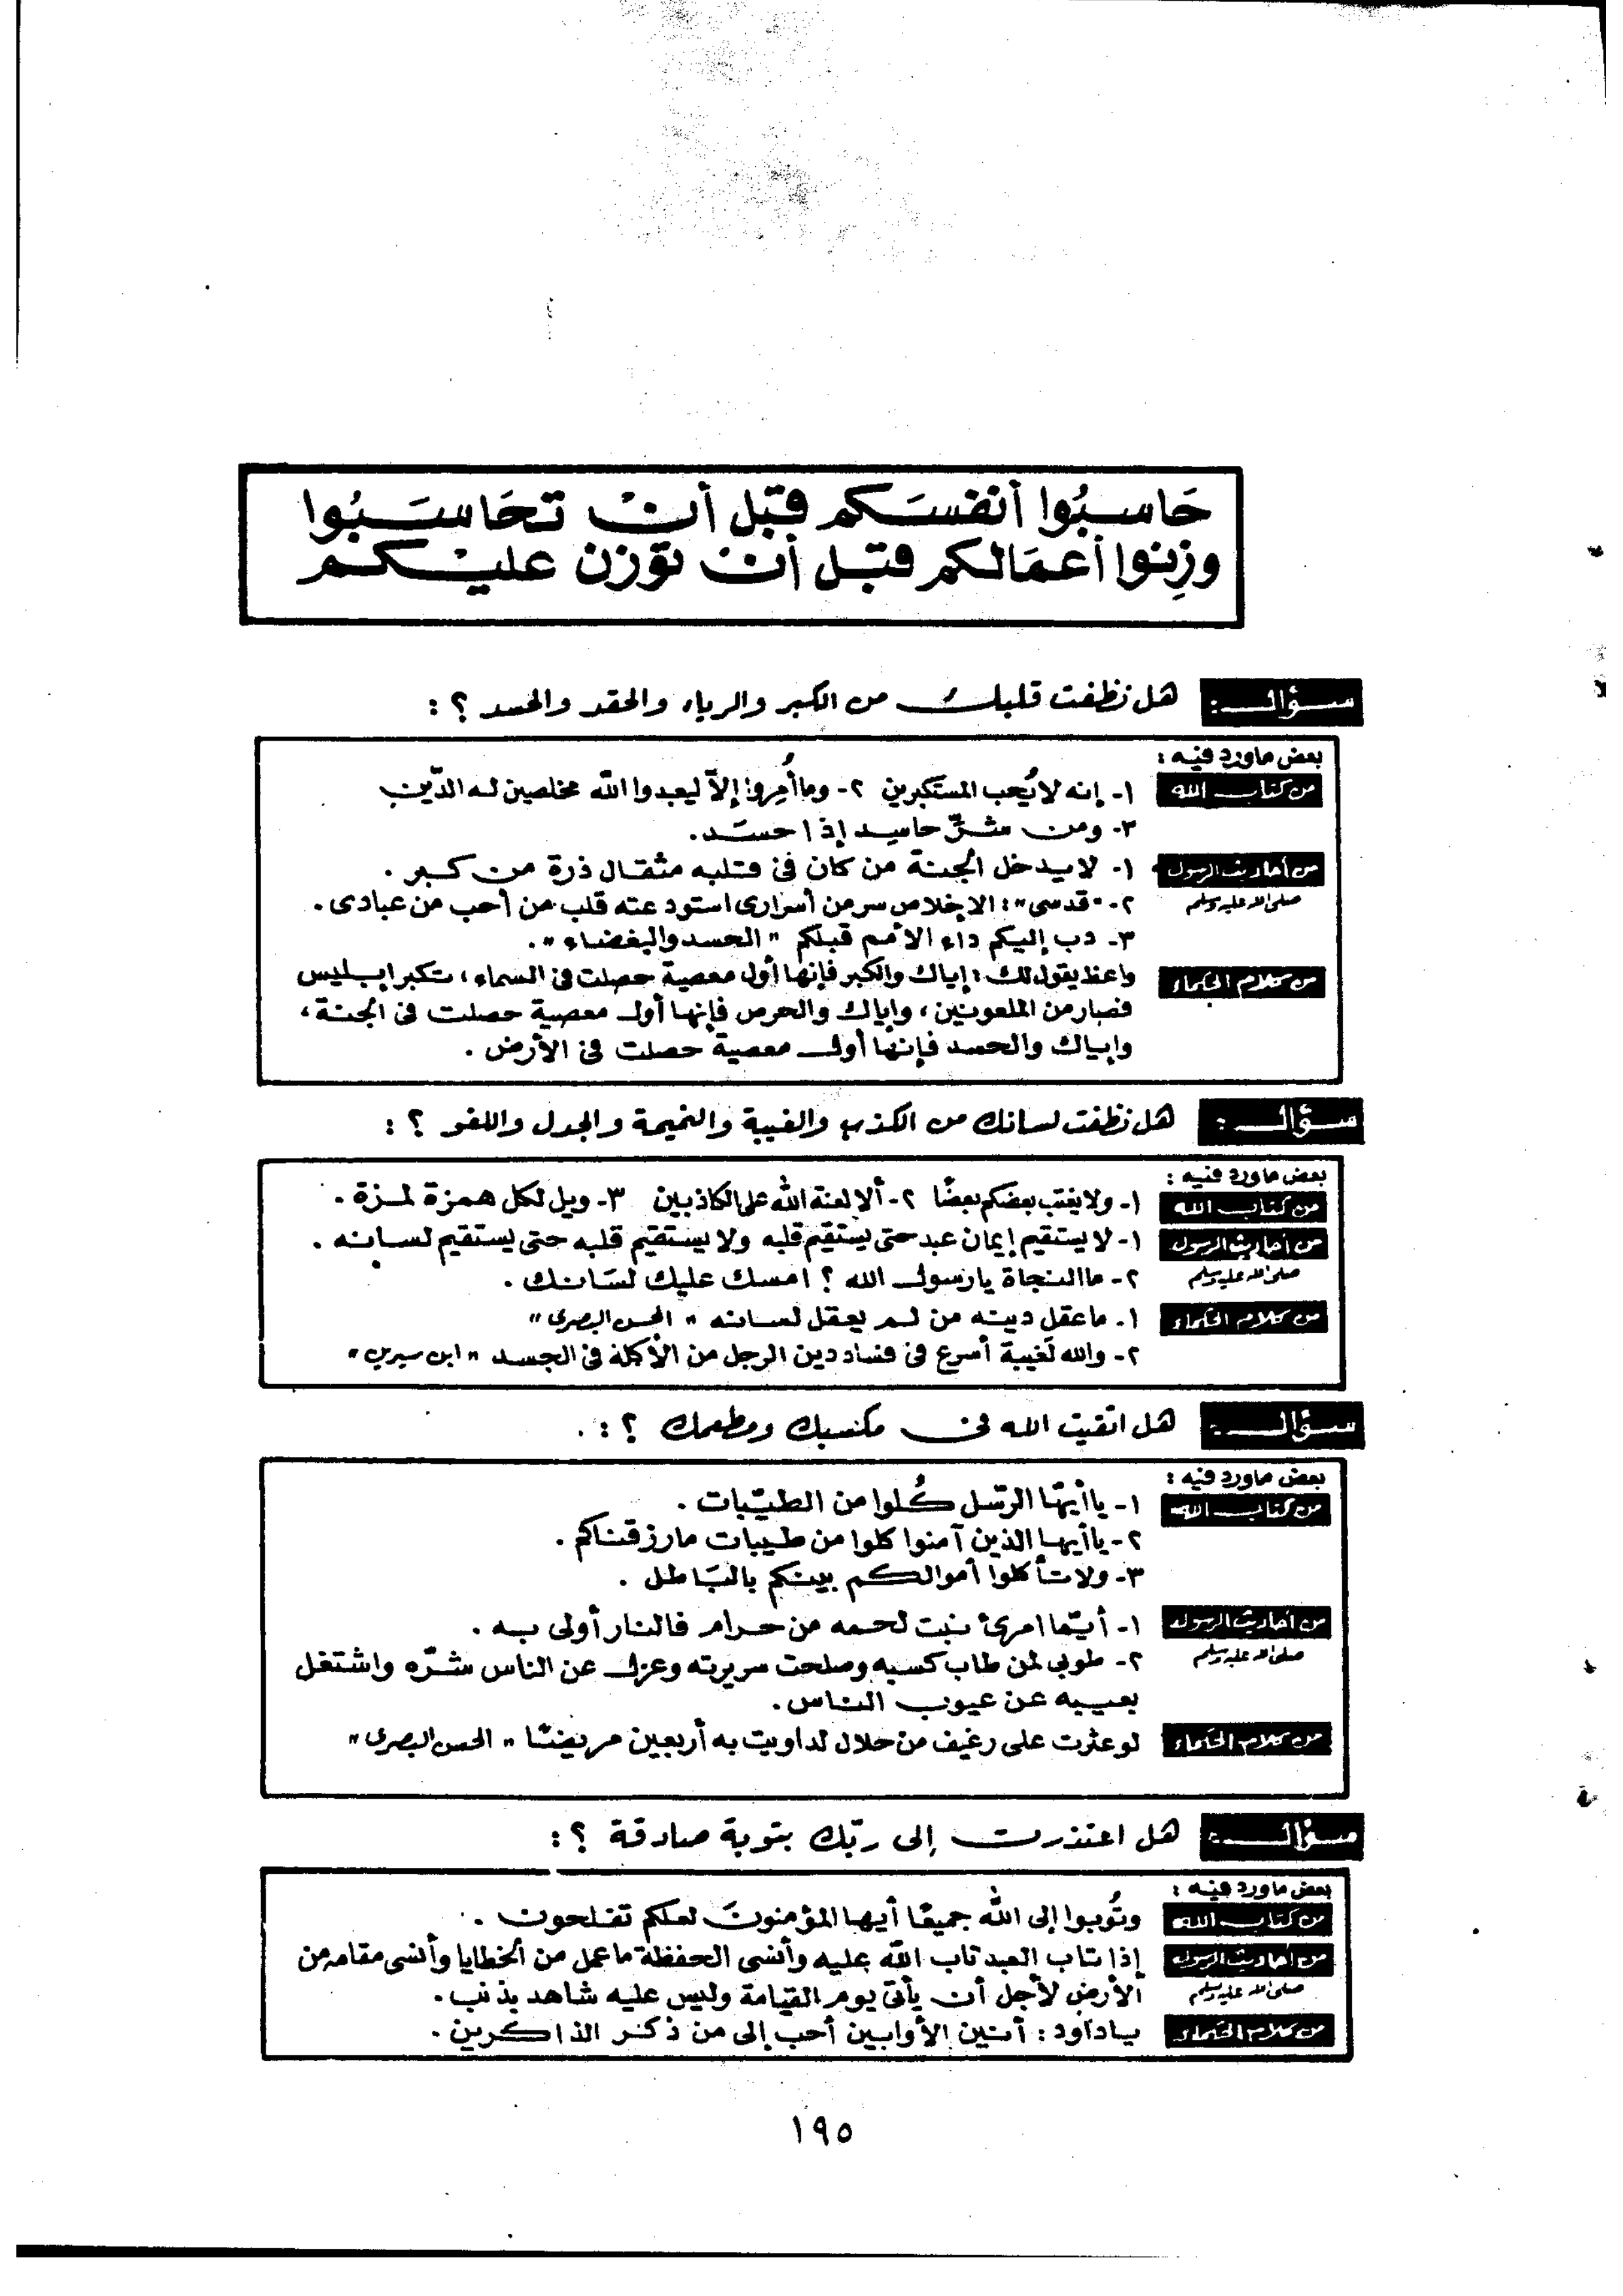 حَاسبُوا أنفسَكم قبل أن تحَاسَبُوا
وزِنوا أعمَالكم قبل أن توزن عليكم
سؤال: هل نظفت قلبك من الكبر والرياء والحقد والحسد ؟ :
بعض ماورد فيه :
من كتاب الله ١- إنه لا يُحب المستكبرين ٢- وما أُمِروا إلاّ ليعبدوا الله مخلصين له الدّين
٣- ومن شرِّ حاسِد إذا حسَد.
من أحاديث الرسول ١- لا يدخل الجنة من كان فى قلبه مثقال ذرة من كبر .
صلى الله عليه وسلم ٢- "قدسى" : الإخلاص سر من أسرارى استودعته قلب من أحب من عبادى .
٣- دب إليكم داء الأمم قبلكم " الحسد والبغضاء " .
من كلام الحكماء واعظ يقول لك : إياك والكبر فإنها أول معصية حصلت فى السماء ، تكبر إبليس
فصار من الملعونين ، وإياك والحرص فإنها أول معصية حصلت فى الجنة ،
وإياك والحسد فإنها أول معصية حصلت فى الأرض .
سؤال : هل نظفت لسانك من الكذب والغيبة والنميمة والجدل واللغو ؟ :
بعض ماورد فيه :
من كتاب الله ١- ولا يغتب بعضكم بعضًا ٢- ألا لعنة الله على الكاذبين ٣- ويل لكل همزة لمزة .
من أحاديث الرسول ١- لا يستقيم إيمان عبد حتى يستقيم قلبه ولا يستقيم قلبه حتى يستقيم لسانه .
صلى الله عليه وسلم ٢- ما النجاة يا رسول الله ؟ امسك عليك لسَانك .
من كلام الحكماء ١- ما عقل دينه من لم يعقل لسانه " الحسن البصرى "
٢- والله لَغيبة أسرع فى فساد دين الرجل من الأكلة فى الجسد " ابن سيرين "
سؤال : هل اتقيت الله فى مكسبك ومطعمك ؟ : .
بعض ماورد فيه :
من كتاب الله ١- يا أيهّا الرّسل كُلوا من الطيّبات .
٢- يا أيها الذين آمنوا كلوا من طيبات ما رزقناكم .
٣- ولا تأكلوا أموالكم بينكم بالبَاطل .
من أحاديث الرسول ١- أيّما امرئ نبت لحمه من حرام فالنار أولى به .
صلى الله عليه وسلم ٢- طوبى لمن طاب كسبه وصلحت سريرته وعزل عن الناس شرّه واشتغل
بعيبه عن عيوب الناس .
من كلام الحكماء لو عثرت على رغيف من حلال لداويت به أربعين مريضًا " الحسن البصرى "
سؤال : هل اعتذرت إلى ربّك بتوبة صادقة ؟ :
بعض ماورد فيه :
من كتاب الله وتُوبوا إلى الله جميعًا أيها المؤمنونَ لعلكم تفلحون .
من أحاديث الرسول إذا تاب العبد تاب الله عليه وأنسى الحفظة ما عمل من الخطايا وأنسى مقامه من
صلى الله عليه وسلم الأرض لأجل أن يأتى يوم القيامة وليس عليه شاهد بذنب .
من كلام الحكماء يا داود : أنين الأوابين أحب إلى من ذكر الذاكرين .
١٩٥